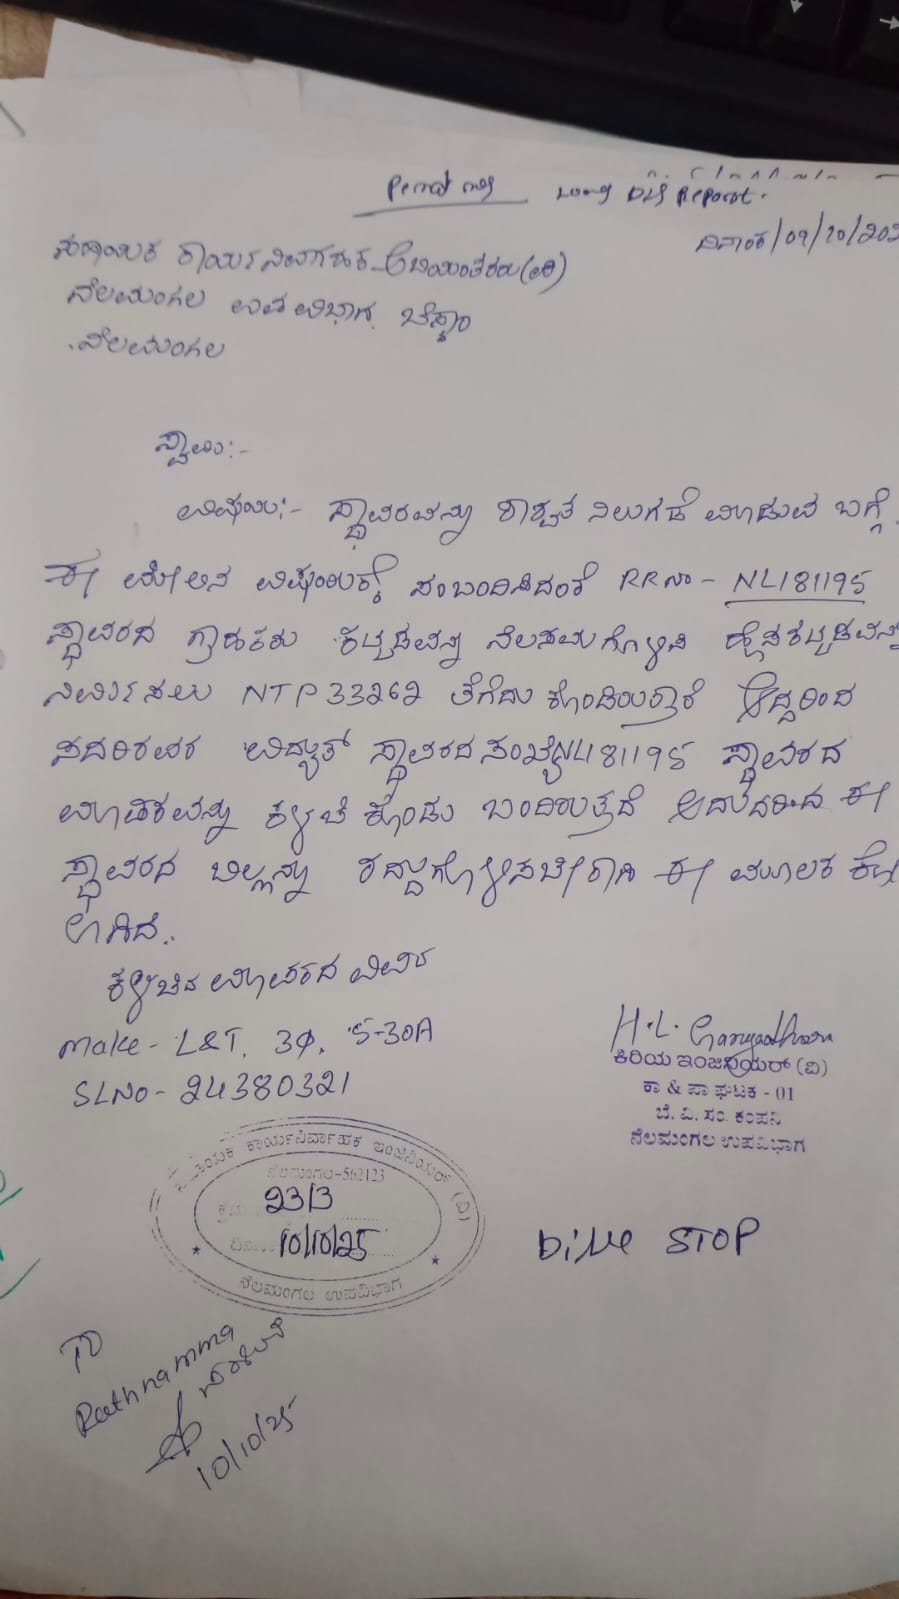 Long Dis Report.
ದಿನಾಂಕ/09/10/202
ಸಹಾಯಕ ಕಾರ್ಯನಿರ್ವಾಹಕ ಅಬಿಯಂತರರು(ವಿ)
ನೆಲಮಂಗಲ ಉಪವಿಭಾಗ, ಬೆಸ್ಕಾಂ
ನೆಲಮಂಗಲ
ಸ್ವಾಮಿ:-
ವಿಷಯ:- ಸ್ಥಾವರವನ್ನು ಶಾಶ್ವತ ನಿಲುಗಡೆ ಮಾಡುವ ಬಗ್ಗೆ.
ಈ ಮೇಲಿನ ವಿಷಯಕ್ಕೆ ಸಂಬಂದಿಸಿದಂತೆ RRNo - NL181195
ಸ್ಥಾವರದ ಗ್ರಾಹಕರು ಕಟ್ಟಡವನ್ನು ನೆಲಸಮಗೊಳಿಸಿ ಹೊಸಕಟ್ಟಡವನ್ನು
ನಿರ್ಮಿಸಲು NTP 33262 ತೆಗೆದು ಕೊಂಡಿರುತ್ತಾರೆ ಆದ್ದರಿಂದ
ಸದರಿರವರ ವಿದ್ಯುತ್ ಸ್ಥಾವರದ ಸಂಖ್ಯೆNL181195 ಸ್ಥಾವರದ
ಮಾಪಕವನ್ನು ಕಳಚಿ ಕೊಂಡು ಬಂದಿರುತ್ತದೆ ಆದುದರಿಂದ ಈ
ಸ್ಥಾವರದ ಬಿಲ್ಲನ್ನು ರದ್ದುಗೊಳಿಸಬೇಕಾಗಿ ಈ ಮೂಲಕ ಕೋ
ಲಾಗಿದೆ..
ಕಳಚಿದ ಮಾಪಕದ ವಿವರ
Make - L&T, 3Φ, 5-30A
SLNo - 24380321
H.L. Gangadharan
ಕಿರಿಯ ಇಂಜಿನಿಯರ್ (ವಿ)
ಕಾ & ಪಾ ಘಟಕ - 01
ಬೆ. ವಿ. ಸಂ. ಕಂಪನಿ
ನೆಲಮಂಗಲ ಉಪವಿಭಾಗ
ಸಹಾಯಕ ಕಾರ್ಯನಿರ್ವಾಹಕ ಇಂಜಿನಿಯರ್ (ವಿ)
ನೆಲಮಂಗಲ-562123
2313
10/10/25
ನೆಲಮಂಗಲ ಉಪವಿಭಾಗ
STOP
TO
Rathnamma
10/10/25